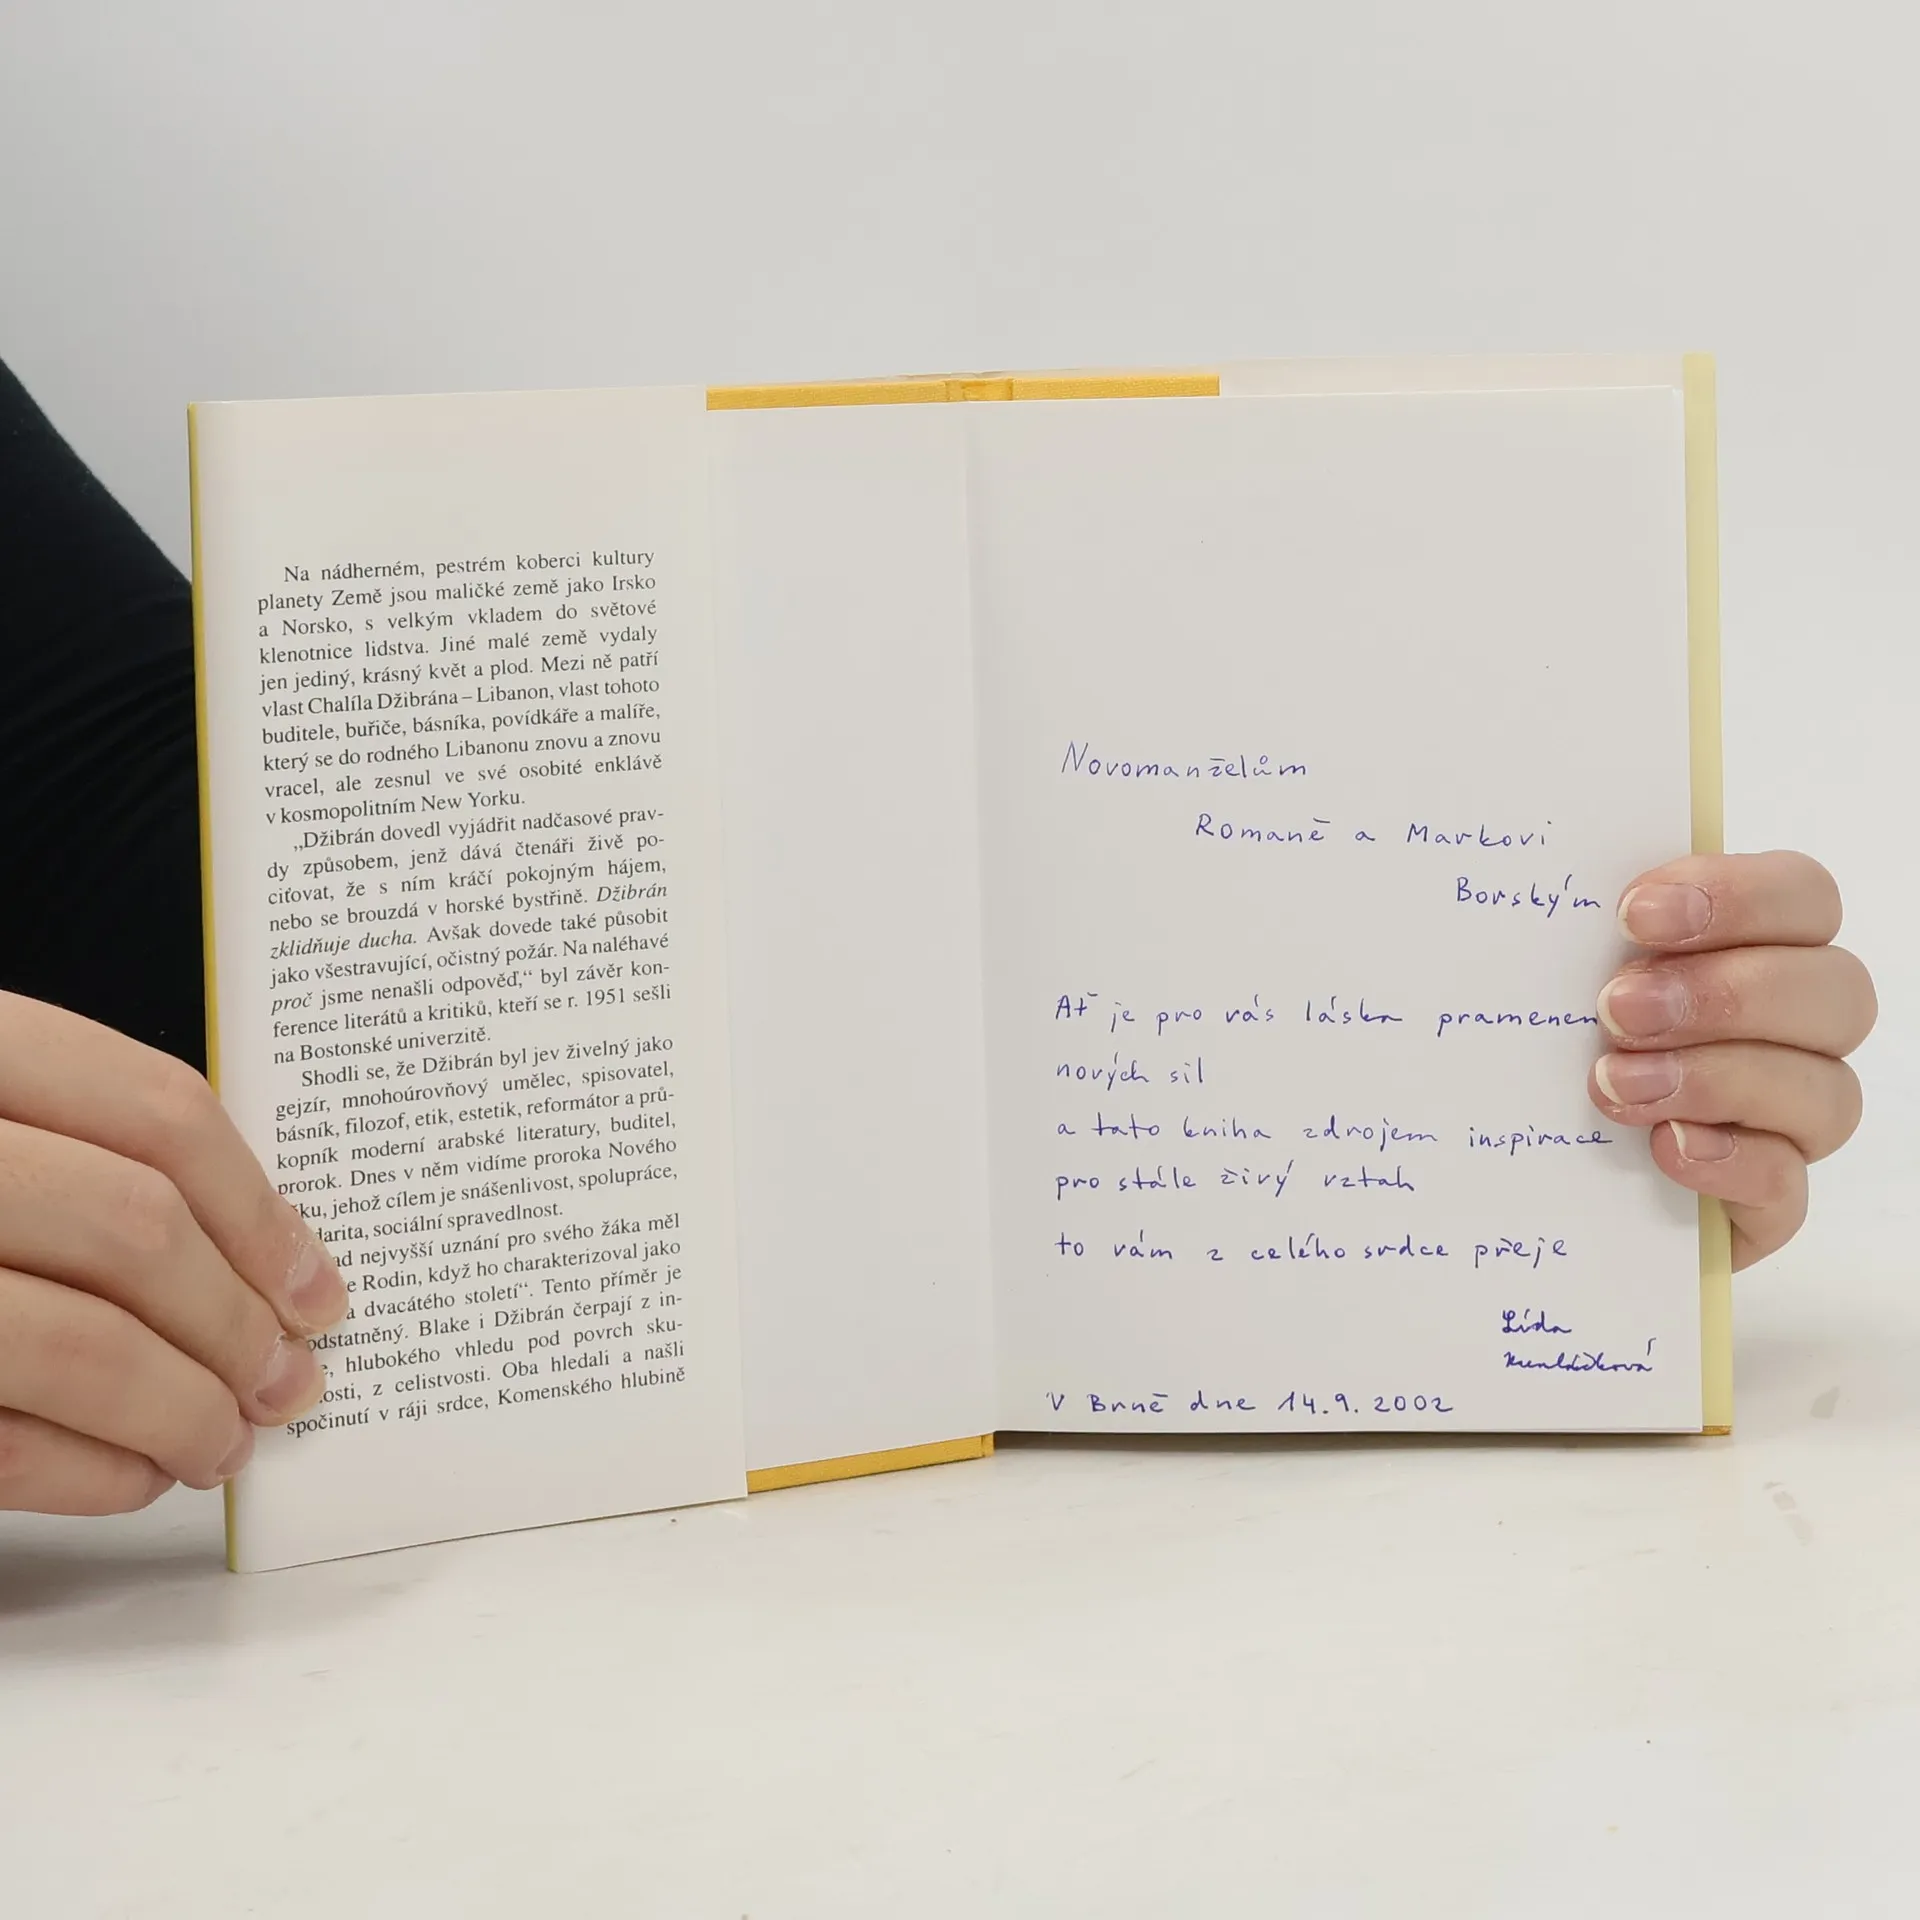 Na nádherném, pestrém koberci kultury
planety Země jsou maličké země jako Irsko
a Norsko, s velkým vkladem do světové
klenotnice lidstva. Jiné malé země vydaly
jen jediný, krásný květ a plod. Mezi ně patří
vlast Chalíla Džibrána – Libanon, vlast tohoto
buditele, buřiče, básníka, povídkáře a malíře,
který se do rodného Libanonu znovu a znovu
vracel, ale zesnul ve své osobité enklávě
v kosmopolitním New Yorku.
„Džibrán dovedl vyjádřit nadčasové prav-
dy způsobem, jenž dává čtenáři živě po-
ciťovat, že s ním kráčí pokojným hájem,
nebo se brouzdá v horské bystřině. Džibrán
zklidňuje ducha. Avšak dovede také působit
jako všestravující, očistný požár. Na naléhavé
proč jsme nenašli odpověď,“ byl závěr kon-
ference literátů a kritiků, kteří se r. 1951 sešli
na Bostonské univerzitě.
Shodli se, že Džibrán byl jev živelný jako
gejzír, mnohoúrovňový umělec, spisovatel,
básník, filozof, etik, estetik, reformátor a prů-
kopník moderní arabské literatury, buditel,
prorok. Dnes v něm vidíme proroka Nového
jehož cílem je snášenlivost, spolupráce,
sociální spravedlnost.
nejvyšší uznání pro svého žáka měl
Rodin, když ho charakterizoval jako
dvacátého století“. Tento příměr je
Blake i Džibrán čerpají z in-
hlubokého vhledu pod povrch sku-
z celistvosti. Oba hledali a našli
spočinutí v ráji srdce, Komenského hlubině
Novomanželům
Romaně a Markovi
Borským
Ať je pro vás láska pramenem
nových sil
a tato kniha zdrojem inspirace
pro stále živý vztah
to vám z celého srdce přeje
Lída
V Brně dne 14.9.2002